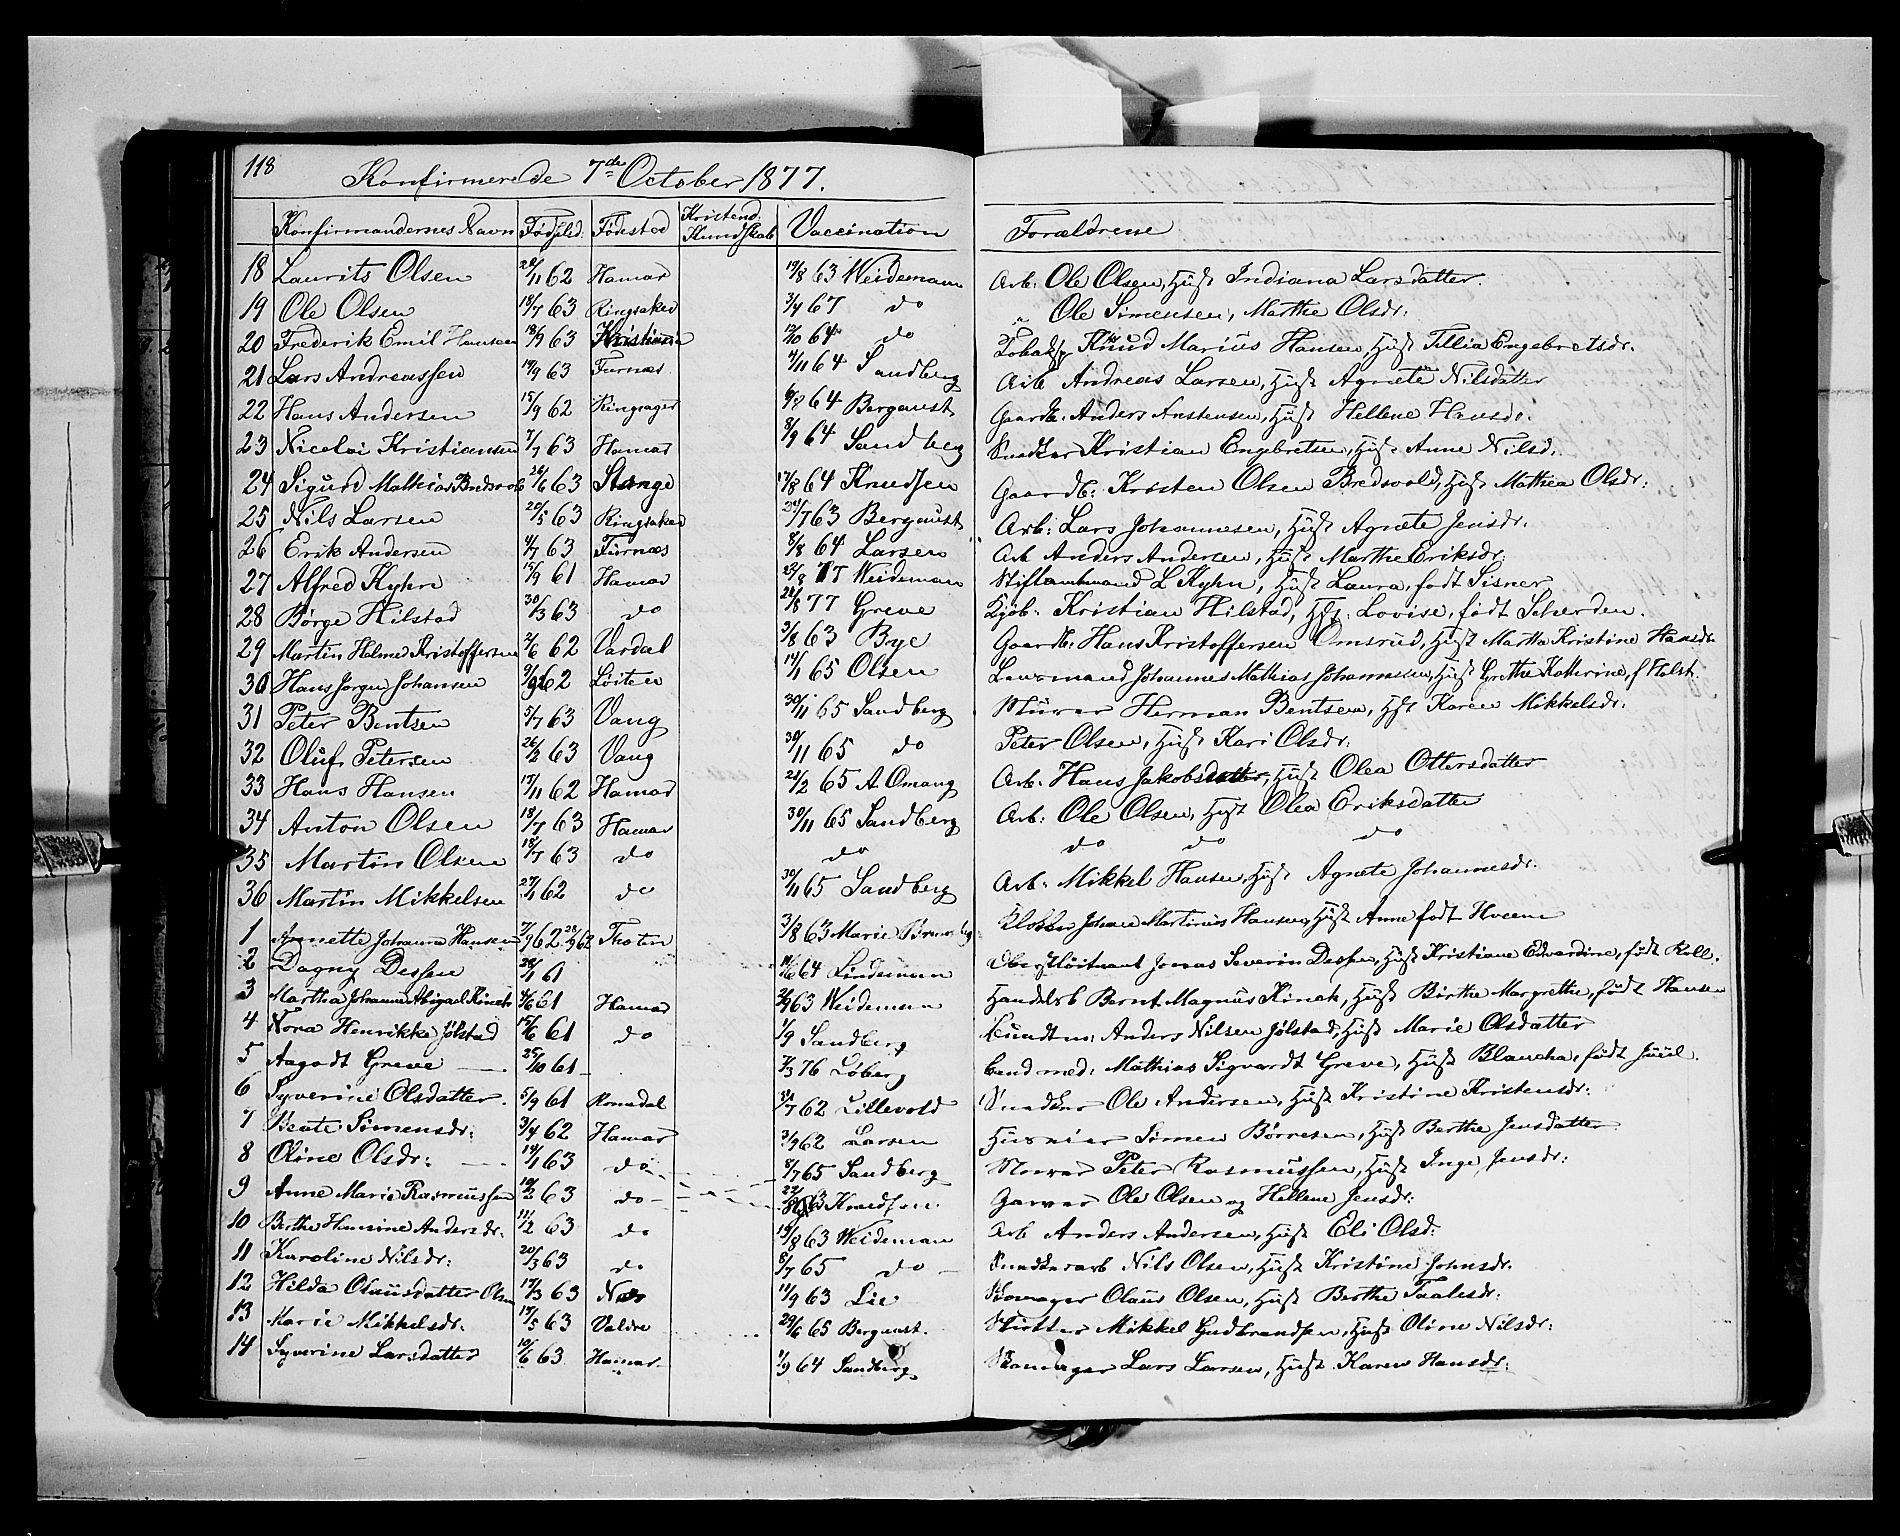 118
Konfirmerede 7de October 1877.
Konfirmandernes Navn Fødselsd: Fødested Kristend: Kundskab Vaccination Forældrene
18 Laurits Olsen 28/11 62 Hamar 19/8 63 Weideman Arb: Ole Olsen, Hust Indiana Larsdatter.
19 Ole Olsen 18/7 63 Ringsaker 3/7 67 do " Ole Simensen, Marthe Olsdr:
20 Frederik Emil Hansen 18/9 63 Kristiania 12/10 64 do Knud Marius Hansen, Hust Tillia Engebretsdr.
21 Lars Andreassen 19/9 63 Furnæs 4/11 64 Sandberg Arb Andreas Larsen, Hust Agnete Nilsdatter
22 Hans Andersen 15/9 62 Ringsager 64 Bergaust Gaardb: Anders Anstensen, Hust Hellene Hansdr.
23 Nicolai Kristiansen 7/7 63 Hamar 8/9 64 Sandberg Snedker Kristian Engebretsen, Hust. Anne Nilsd.
24 Sigurd Mathias Bredvold 26/6 63 Stange 17/8 64 Knudsen Gaardb: Kristen Olsen Bredvold, Hust Mathea Olsdr:
25 Nils Larsen 20/5 63 Ringsaker 24/7 63 Bergaust Arb: Lars Johannesen, Hust Agnete Jensdr.
26 Erik Andersen 4/7 63 Furnæs 8/8 64 Larsen Arb Anders Andersen, Hust Marthe Eriksdr.
27 Alfred Kyhn 15/9 61 Hamar 23/8 Weideman Stiftamtmand L Kyhn, Hust Laura, født Sisner
28 Børge Hilstad 30/3 63 do 28/8 77 Greve Kjøb: Kristian Hilstad, Hust: Lovise, født Scherden.
29 Martin Helmer Kristoffersen 2/6 62 Vardal 3/8 63 Bye Gaardb: Hans Kristoffersen Omsrud, Hust Martha Kristine Hansdr.
30 Hans Jørgen Johansen 9/9 62 Løiten 14/1 65 Olsen Lensmand Johannes Mathias Johannesen, Hust Grethe Katherine, f Holst.
31 Peter Bentsen 5/7 63 Vang 30/11 65 Sandberg Stuver Herman Bentsen, Hst Karen Mikkelsdr.
32 Oluf Petersen 26/2 63 Vang 30/11 65 do Peter Olsen, Hust Kari Olsdr:
33 Hans Hansen 17/11 62 Hamar 21/2 65 A Omang Arb: Hans Jakobsdatter, Hust Olea Ottersdatter
34 Anton Olsen 18/7 63 Hamar 30/11 65 Sandberg Arb: Ole Olsen, Hust Olea Eriksdatter
35 Martin Olsen 18/7 63 do do do do do
36 Martin Mikkelsen 27/1 62 do 30/11 65 Sandberg Arb: Mikkel Hansen, Hust Agnete Johannesdr:
1 Annette Johanna Hansen 7/9 62 28/9 62 Thoten 3/8 63 Marie Klokker Johan Martinus Hansen, Hust Anne født Hveem
2 Dagny Dessen 28/1 61 11/6 64 Lindeman Jonas Severin Dessen, Hust Kristiane Edvardine, født Roll.
3 Martha Johanne Abigael Kinck 4/6 61 Hamar 2/9 63 Weideman Handelsb Bernt Magnus Kinck, Hust Birthe Margrethe, født Hansen
4 Nora Henrikke Jølstad 15/6 61 do 1/9 Sandberg Anders Nilsen Jølstad, Hust Marie Olsdatter
5 Aagodt Greve 25/10 61 7/3 76 Løberg Cand med: Mathias Sigvardt Greve, Hust Blancha, født Juul.
6 Syverine Olsdatter. 5/9 61 Romedal 31/7 62 Lillevold Snedker Ole Andersen, Hust Kristine Kristensdr:
7 Beate Simensdr: 3/4 62 Hamar 3/9 62 Larsen Simen Børresen, Hust Berthe Jensdatter
8 Oline Olsdr: 14/1 63 do 8/7 65 Sandberg Peter Rasmussen, Hust Inge Jensdr:
9 Anne Marie Rasmussen 10/2 63 do Knudsen Garver Ole Olsen og Hellene Jensdr:
10 Berthe Hansine Andersdr. 11/2 63 do 19/8 63 Weideman Arb Anders Andersen, Hust Eli Olsd:
11 Karoline Nilsdr: 20/3 63 do 8/7 65 do Snedkerarb Nils Olsen, Hust Kristine Johnsdr.
12 Hilda Olausdatter Olsen 17/3 63 Næs 11/9 63 Lie Skomager Olaus Olsen, Hust Berthe Taalesdr:
13 Marie Mikkelsdr: 17/5 63 Valdre 29/6 65 Bergaust. Mikkel Gudbrandsen, Hust Oline Nilsdr:
14 Syverine Larsdatter 10/6 63 Hamar 1/9 64 Sandberg Skomager Lars Larsen, Hust Karen Hansdr: